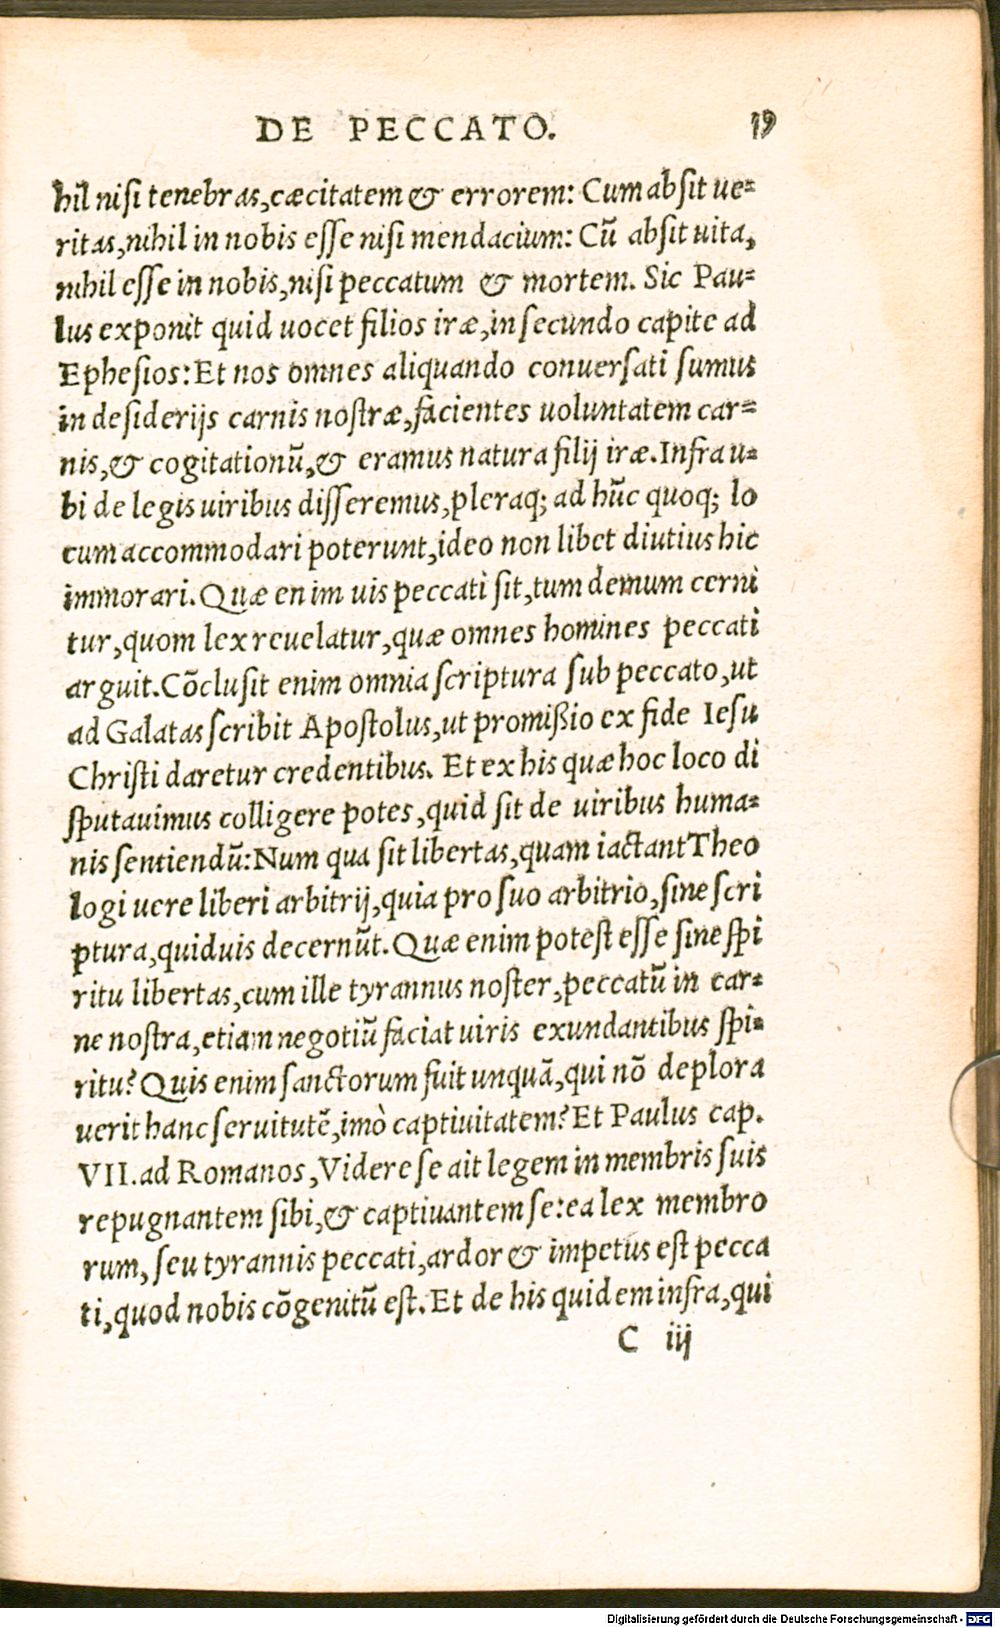 DE PECCATO. 19
hil nisi tenebras, cæcitatem & errorem: Cum absit ue=
ritas, nihil in nobis esse nisi mendacium: Cũ absit uita,
nihil esse in nobis, nisi peccatum & mortem. Sic Pau=
lus exponit quid uocet filios iræ, in secundo capite ad
Ephesios: Et nos omnes aliquando conuersati sumus
in desiderijs carnis nostræ, facientes uoluntatem car=
nis, & cogitationũ, & eramus natura filij iræ. Infra u=
bi de legis uiribus disseremus, pleraq; ad hũc quoq; lo
cum accommodari poterunt, ideo non libet diutius hic
immorari. Quæ enim uis peccati sit, tum demum cerni
tur, quom lex reuelatur, quæ omnes homines peccati
arguit. Cõclusit enim omnia scriptura sub peccato, ut
ad Galatas scribit Apostolus, ut promißio ex fide Iesu
Christi daretur credentibus. Et ex his quæ hoc loco di
sputauimus colligere potes, quid sit de uiribus huma=
nis sentiendũ: Num qua sit libertas, quam iactant Theo
logi uere liberi arbitrij, quia pro suo arbitrio, sine scri
ptura, quiduis decernũt. Quæ enim potest esse sine spi
ritu libertas, cum ille tyrannus noster, peccatũ in car=
ne nostra, etiam negotiũ faciat uiris exundantibus spi=
ritu? Quis enim sanctorum fuit unquã, qui nõ deplora
uerit hanc seruitutẽ, imò captiuitatem? Et Paulus cap.
VII. ad Romanos, Videre se ait legem in membris suis
repugnantem sibi, & captiuantem se: ea lex membro
rum, seu tyrannis peccati, ardor & impetus est pecca
ti, quod nobis cõgenitũ est. Et de his quidem infra, qui
C iij
Digitalisierung gefördert durch die Deutsche Forschungsgemeinschaft - DFG